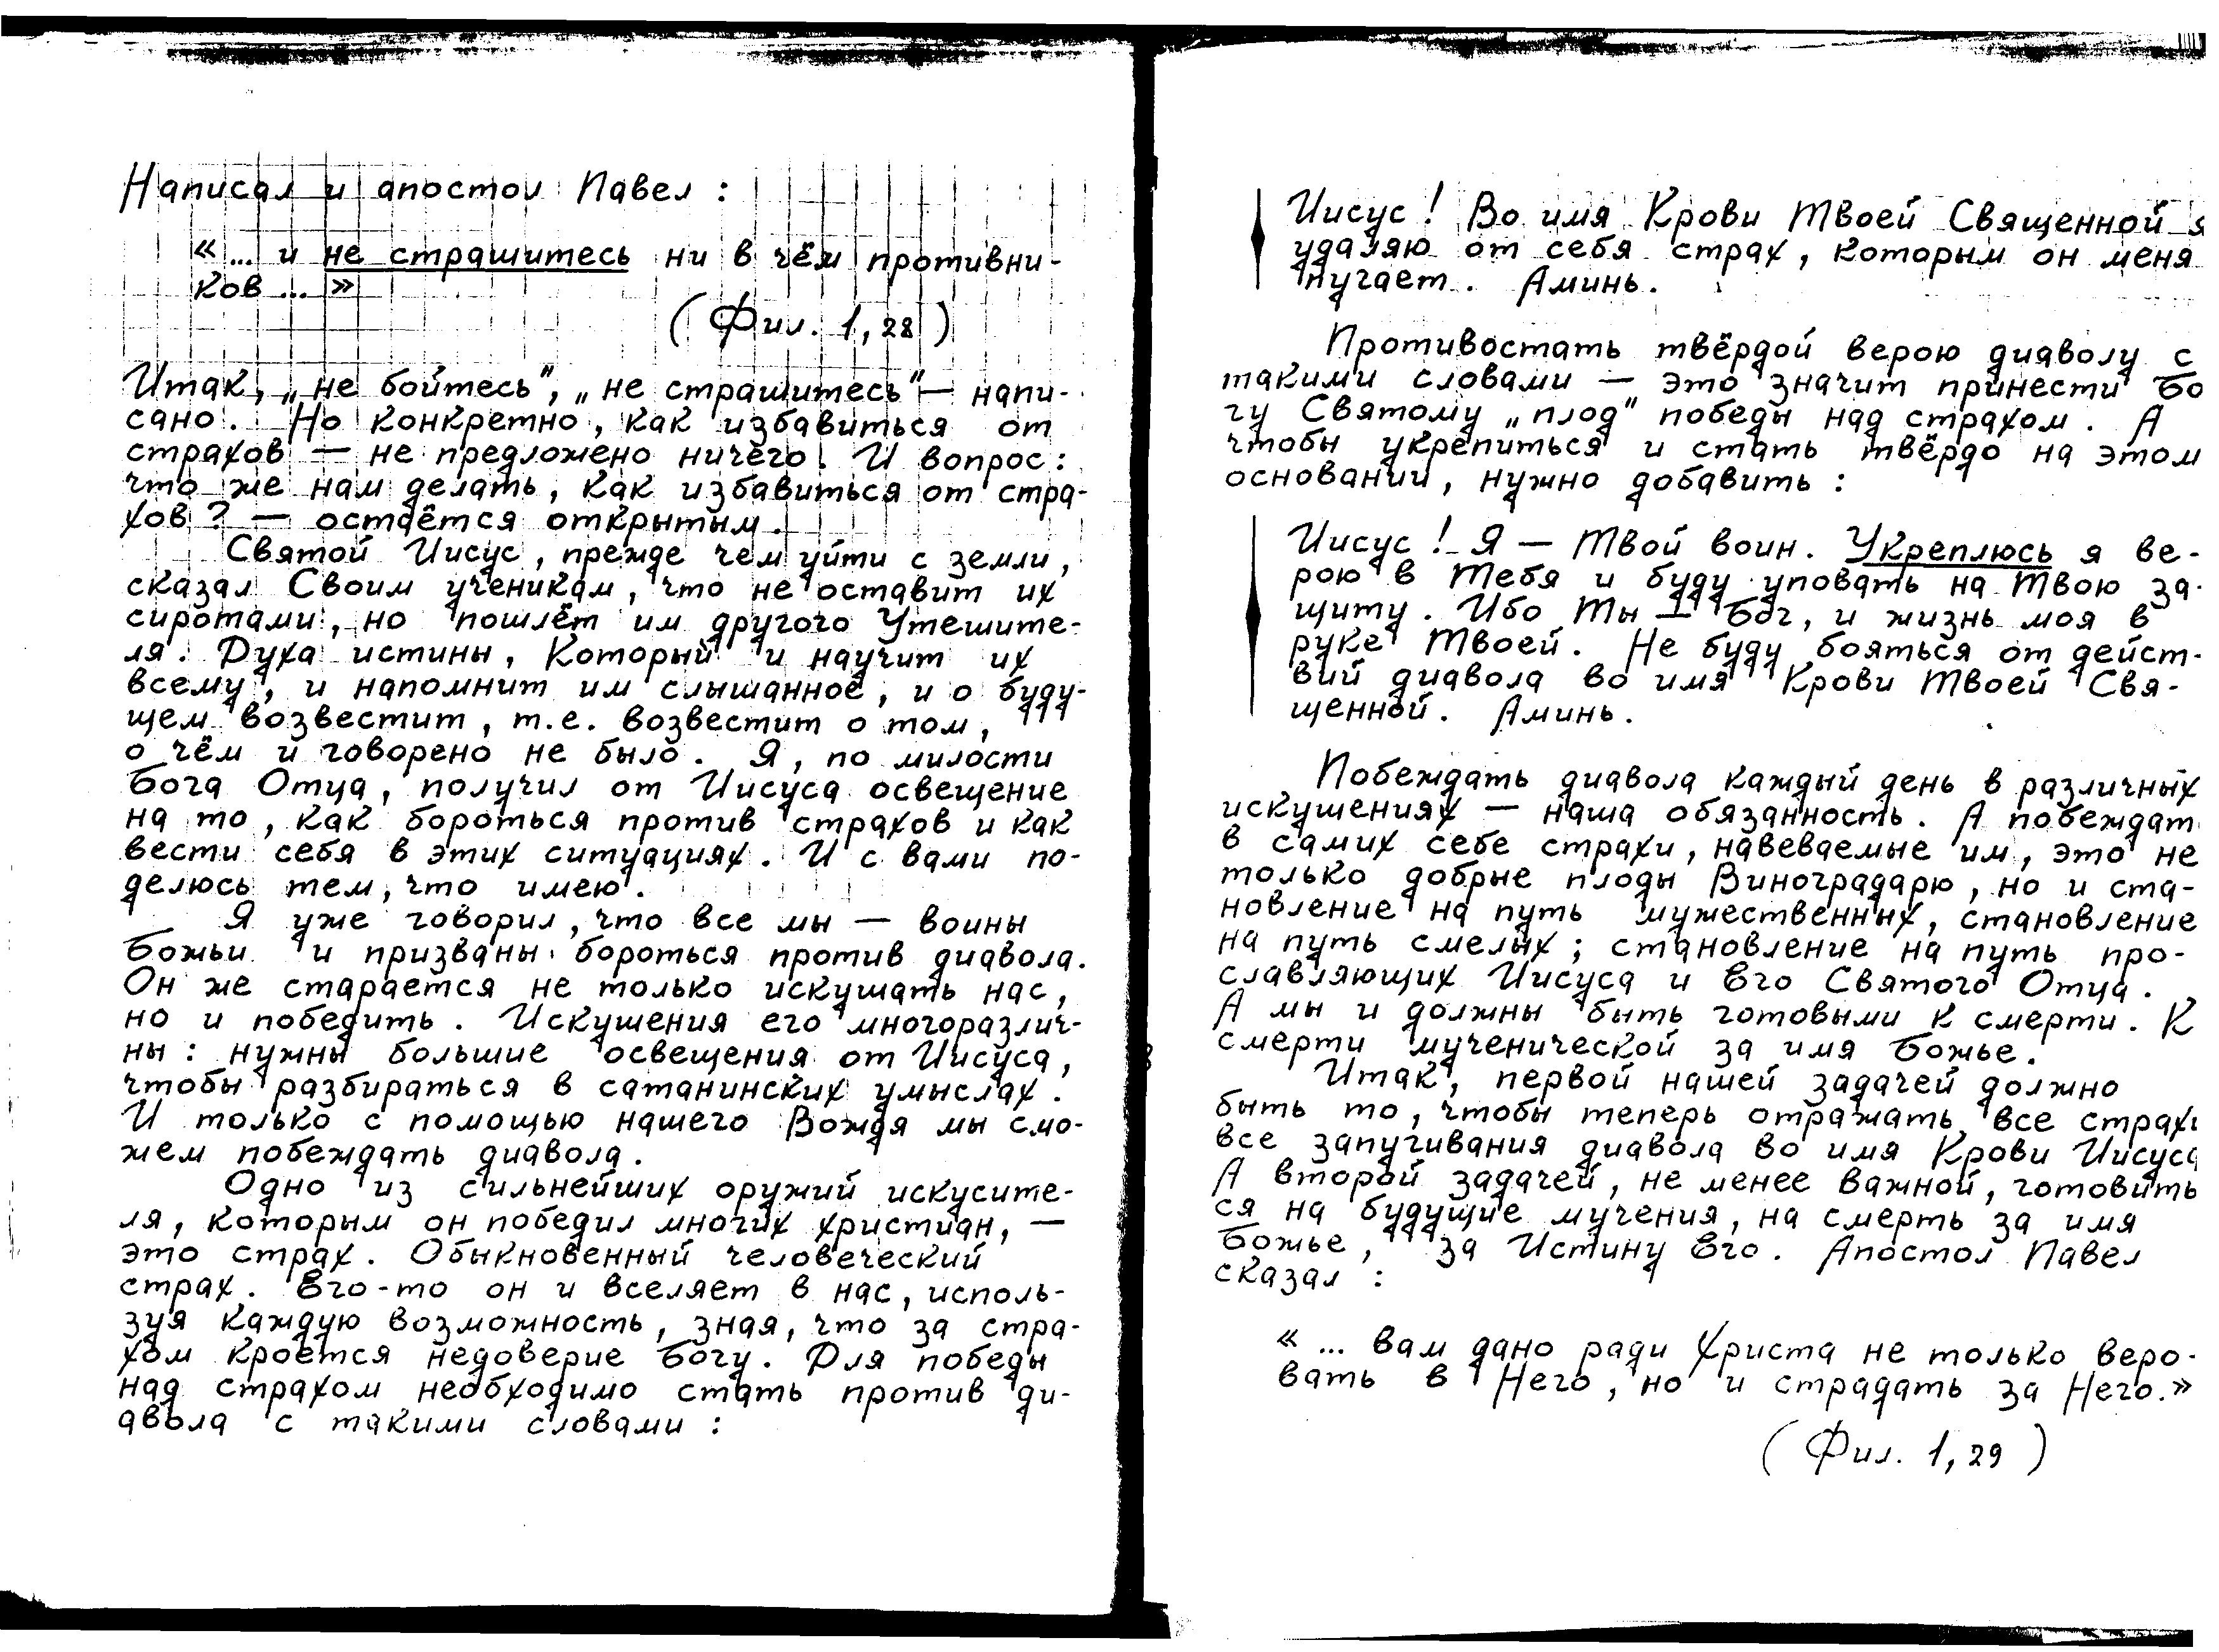 Написал и апостол Павел :
«... и не страшитесь ни в чём противни-
ков ... »
( Фил. 1, 28 )
Итак, „не бойтесь", „не страшитесь" — напи-
сано. Но конкретно, как избавиться от
страхов — не предложено ничего. И вопрос:
что же нам делать, как избавиться от стра-
хов ? — остаётся открытым.
Святой Иисус, прежде чем уйти с земли,
сказал Своим ученикам, что не оставит их
сиротами, но пошлёт им другого Утешите-
ля. Духа истины, Который и научит их
всему, и напомнит им слышанное, и о буду-
щем возвестит, т.е. возвестит о том,
о чём и говорено не было. Я, по милости
Бога Отца, получил от Иисуса освещение
на то, как бороться против страхов и как
вести себя в этих ситуациях. И с вами по-
делюсь тем, что имею.
Я уже говорил, что все мы — воины
Божьи и призваны бороться против диавола.
Он же старается не только искушать нас,
но и победить. Искушения его многоразлич-
ны : нужны большие освещения от Иисуса,
чтобы разбираться в сатанинских умыслах.
И только с помощью нашего Вождя мы смо-
жем побеждать диавола.
Одно из сильнейших оружий искусите-
ля, которым он победил многих христиан, —
это страх. Обыкновенный человеческий
страх. Его-то он и вселяет в нас, исполь-
зуя каждую возможность, зная, что за стра-
хом кроется недоверие Богу. Для победы
над страхом необходимо стать против ди-
авола с такими словами :
Иисус ! Во имя Крови Твоей Священной я
удаляю от себя страх, которым он меня
пугает. Аминь.
Противостать твёрдой верою диаволу с
такими словами — это значит принести Бо
гу Святому „плод" победы над страхом. А
чтобы укрепиться и стать твёрдо на этом
основании, нужно добавить :
Иисус ! Я — Твой воин. Укреплюсь я ве-
рою в Тебя и буду уповать на Твою за-
щиту. Ибо Ты — Бог, и жизнь моя в
руке Твоей. Не буду бояться от дейст-
вий диавола во имя Крови Твоей Свя-
щенной. Аминь.
Побеждать диавола каждый день в различных
искушениях — наша обязанность. А побеждат
в самих себе страхи, навеваемые им, это не
только добрые плоды Виноградарю, но и ста-
новление на путь мужественных, становление
на путь смелых ; становление на путь про-
славляющих Иисуса и Его Святого Отца.
А мы и должны быть готовыми к смерти. К
смерти мученической за имя Божье.
Итак, первой нашей задачей должно
быть то, чтобы теперь отражать все страхи
все запугивания диавола во имя Крови Иисуса
А второй задачей, не менее важной, готовить
ся на будущие мучения, на смерть за имя
Божье, за Истину Его. Апостол Павел
сказал :
« ... вам дано ради Христа не только веро-
вать в Него, но и страдать за Него.»
( Фил. 1, 29 )